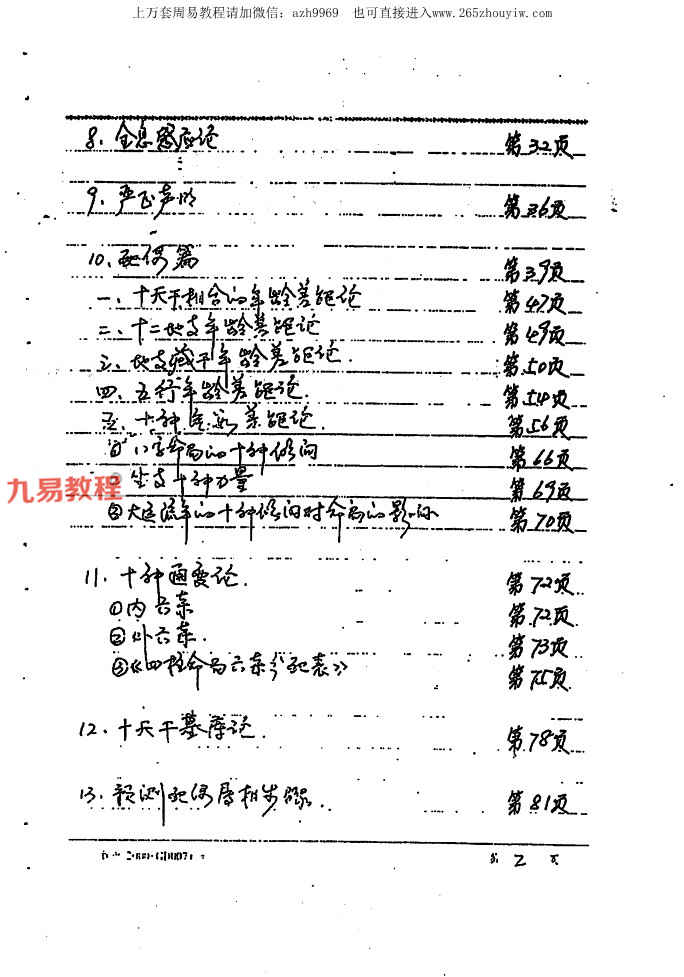 上万套周易教程请加微信：azh9969 也可直接进入www.265zhouyiw.com
8、全息感应论 第32页
9、严正声明 第36页
10、配偶篇 第39页
一、十天干相合的年龄差距论 第47页
二、十二地支年龄差距论 第49页
三、地支藏干年龄差距论. 第50页
四、五行年龄差距论. 第54页
五、十神年龄差距论. 第56页
① 八字命局的十神倾向 第66页
九易教程®
② 生克十神力量 第69页
③大运流年的十神倾向对命局的影响 第70页
11、十神通变论. 第72页
①内六亲 第72页
②外六亲. 第73页
③《四柱命局六亲分配表》 第75页
12、十天干墓库论. 第78页
13、预测配偶层相步骤.. 第81页
第 2 页